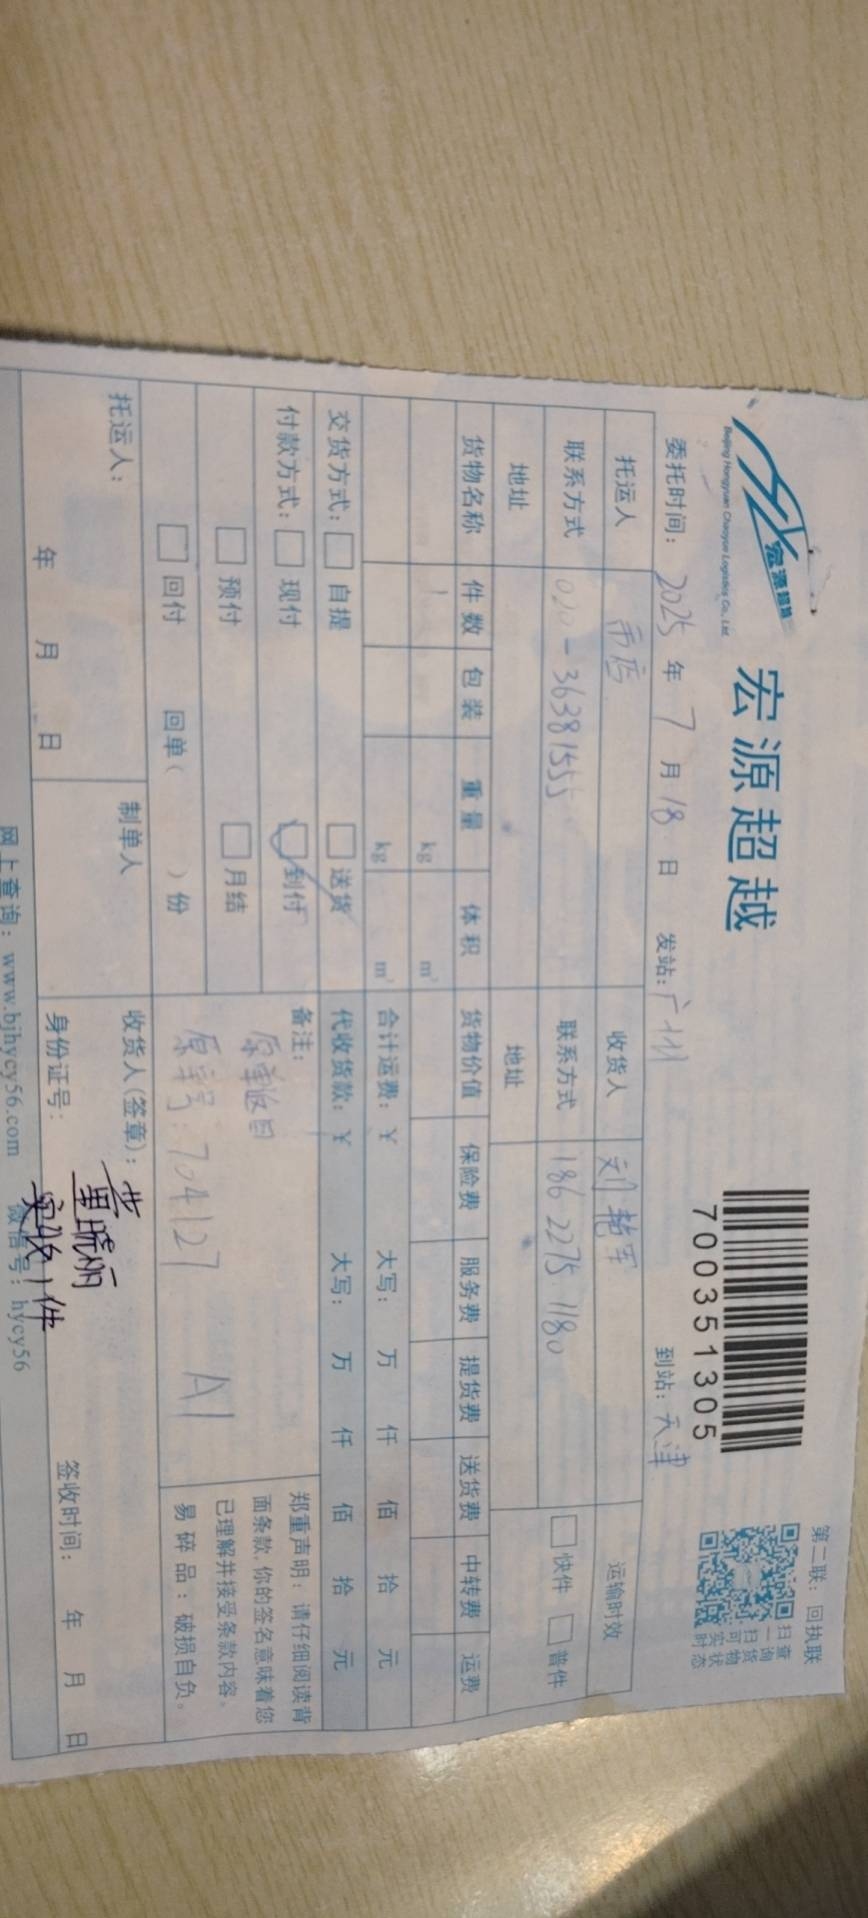 宏源超越
Beijing Hongyuan Chaoyue Logistics Co., Ltd.
宏源超越
700351305
第二联：回执联
扫一扫可实时
查询货物状态
委托时间：2025年7月18日 发站：广州 到站：天津
托运人 收货人 刘艳军 运输时效
联系方式 020-36381555 联系方式 186 2275 1180 快件 普件
地址 地址
货物名称 件数 包装 重量 体积 货物价值 保险费 服务费 提货费 送货费 中转费 运费
1 kg m³
kg m³ 合计运费：¥ 大写： 万 仟 佰 拾 元
交货方式： 自提 送货 代收货款：¥ 大写： 万 仟 佰 拾 元
付款方式： 现付 到付
预付 月结
回付 回单（ ）份
备注：
原单返回
原单号：704127 A1
郑重声明：请仔细阅读背
面条款，你的签名意味着您
已理解并接受条款内容。
易碎品：破损自负。
托运人： 制单人 收货人(签章)：黄晓丽
实收1件
年 月 日 身份证号： 签收时间： 年 月 日
网上查询：www.bjhycy56.com 微信号：hycy56